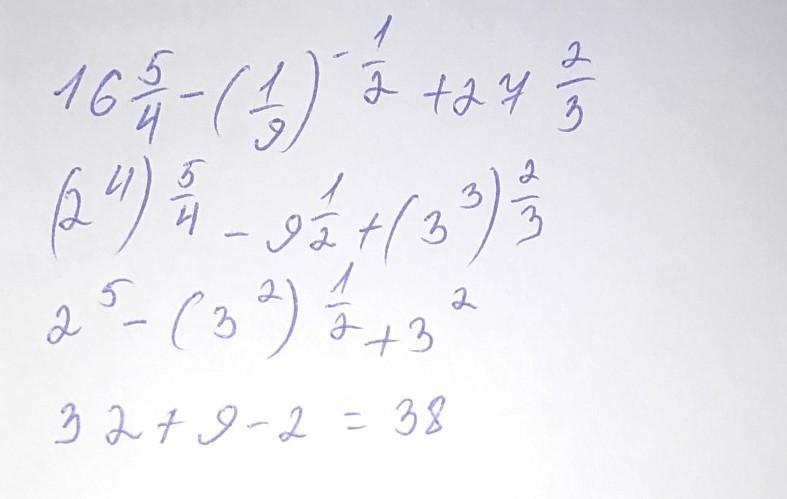 16 5/4 - (1/9)^-1/2 + 27 2/3
(2^4) 5/4 - 9 1/2 + (3^3) 2/3
2^5 - (3^2) 1/2 + 3^2
32 + 9 - 2 = 38